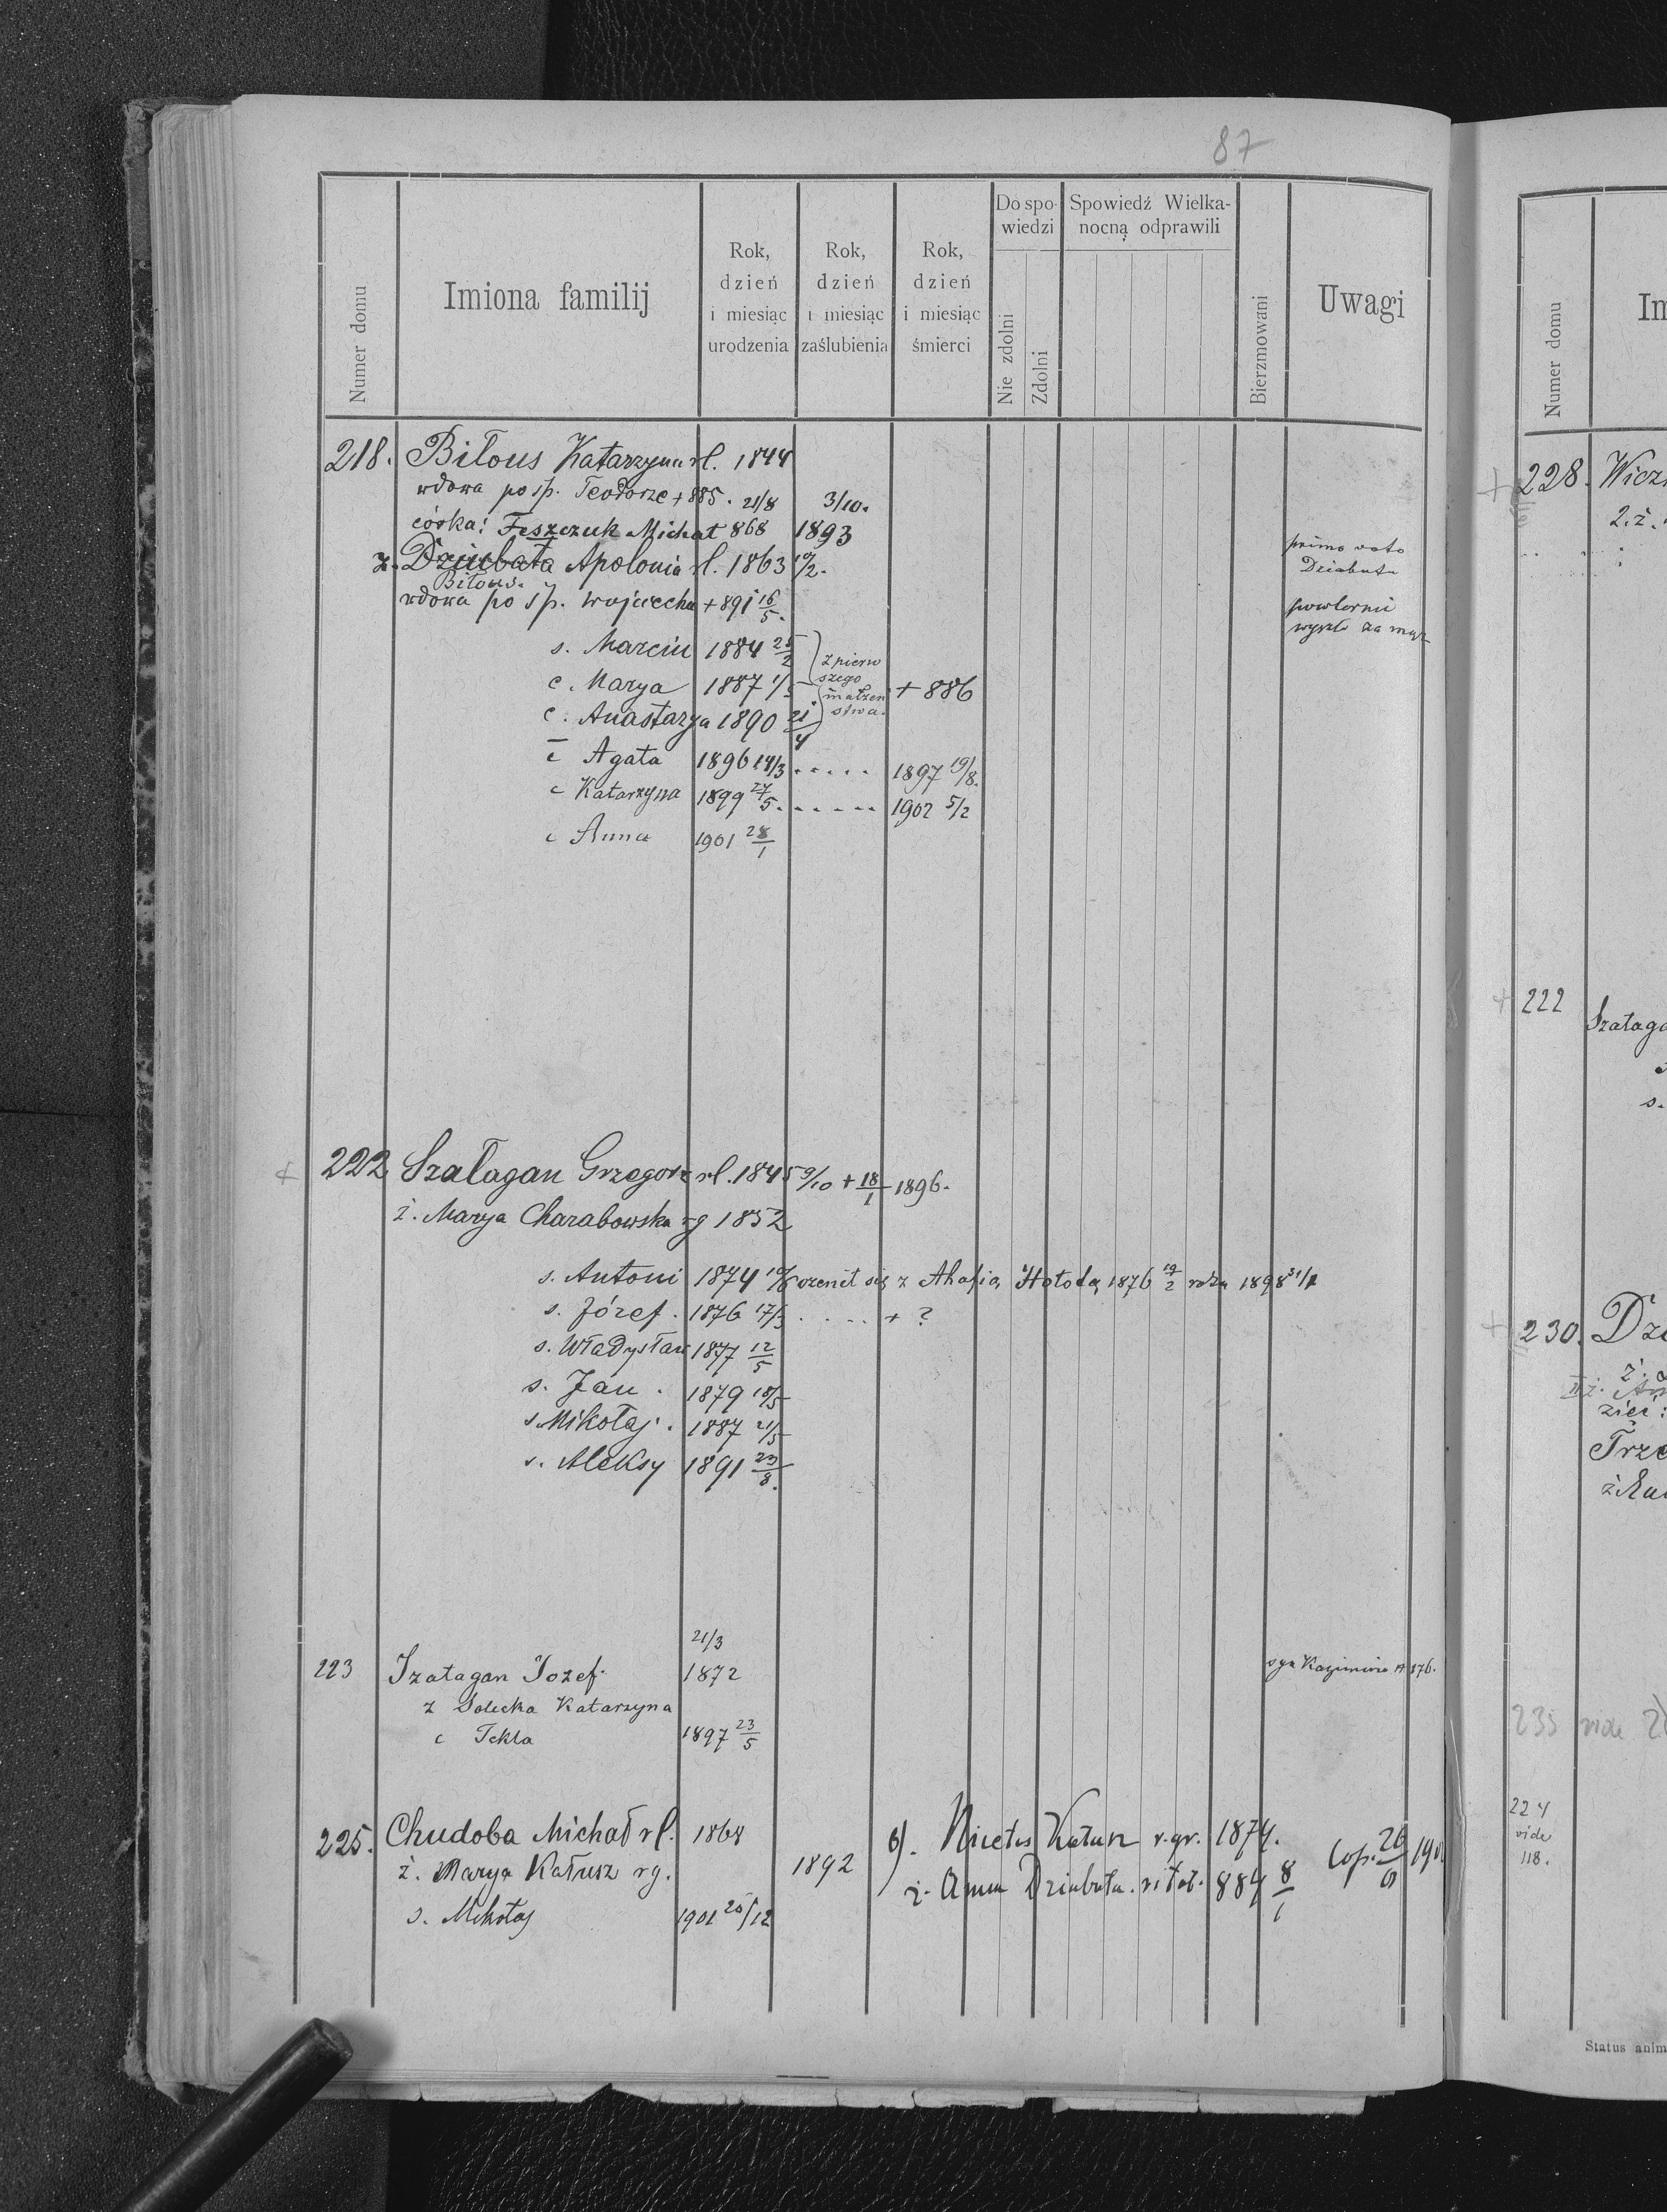 87
Numer domu
Imiona familij
Rok, dzień i miesiąc urodzenia
Rok, dzień i miesiąc zaślubienia
Rok, dzień i miesiąc śmierci
Do spo-
wiedzi
Nie zdolni
Zdolni
Spowiedź Wielka-
nocną odprawili
Bierzmowani
Uwagi
218. Biłous Katarzyna rl. 1844
wdowa po śp. Teodorze + 885. 21/8 3/10.
córka: Feszczuk Michał 868 1893
ż. Dziubata Apolonia rl. 1863 10/2. primo voto
Biłous. Dziabuta
wdowa po śp. Wojciechu + 891 16/5. powtornie
wyszła za mąż
s. Marcin 1884 25/2 z pierw
c. Marya 1887 1/5 szego + 886
małżeń
c. Anastazya 1890 21/4 stwa.
c Agata 1896 14/3 ..... 1897 19/8.
c Katarzyna 1899 27/5. ..... 1902 5/2
c Anna 1901 28/1
+ 222 Szałagan Grzegorz rl. 1845 9/10 + 18/1 1896.
ż. Marya Charabowska rg 1852
s. Antoni 1874 ożenił się z Ahafią Hołodą 1876 19/2 roku 1898 31/1
s. Józef. 1876 17/3 ..... + ?
s. Władysław 1877 12/5
s. Jan. 1879 18/5
s. Mikołaj. 1887 21/5
s. Aleksy 1891 23/8.
21/3
223 Szałagan Jozef. 1872 syn Kazimirza 176.
z Solecka Katarzyna
c Tekla 1897 23/5
225. Chudoba Michał rl. 1868
ż. Marya Kałusz rg. 1892
s. Mikołaj 1901 20/12
Katusz r. gr. 1874.
ż. Anna Dziubuta. rit lat. 884 8/1
Cop. 26/
Numer domu
Im
+ 228. Wicz
2. ż.
+ 222 Szałaga
s.
+ 230. Dzi
ż.
II ż. An
zięć:
Trze
235 vide
224
vide
118.
Status anim